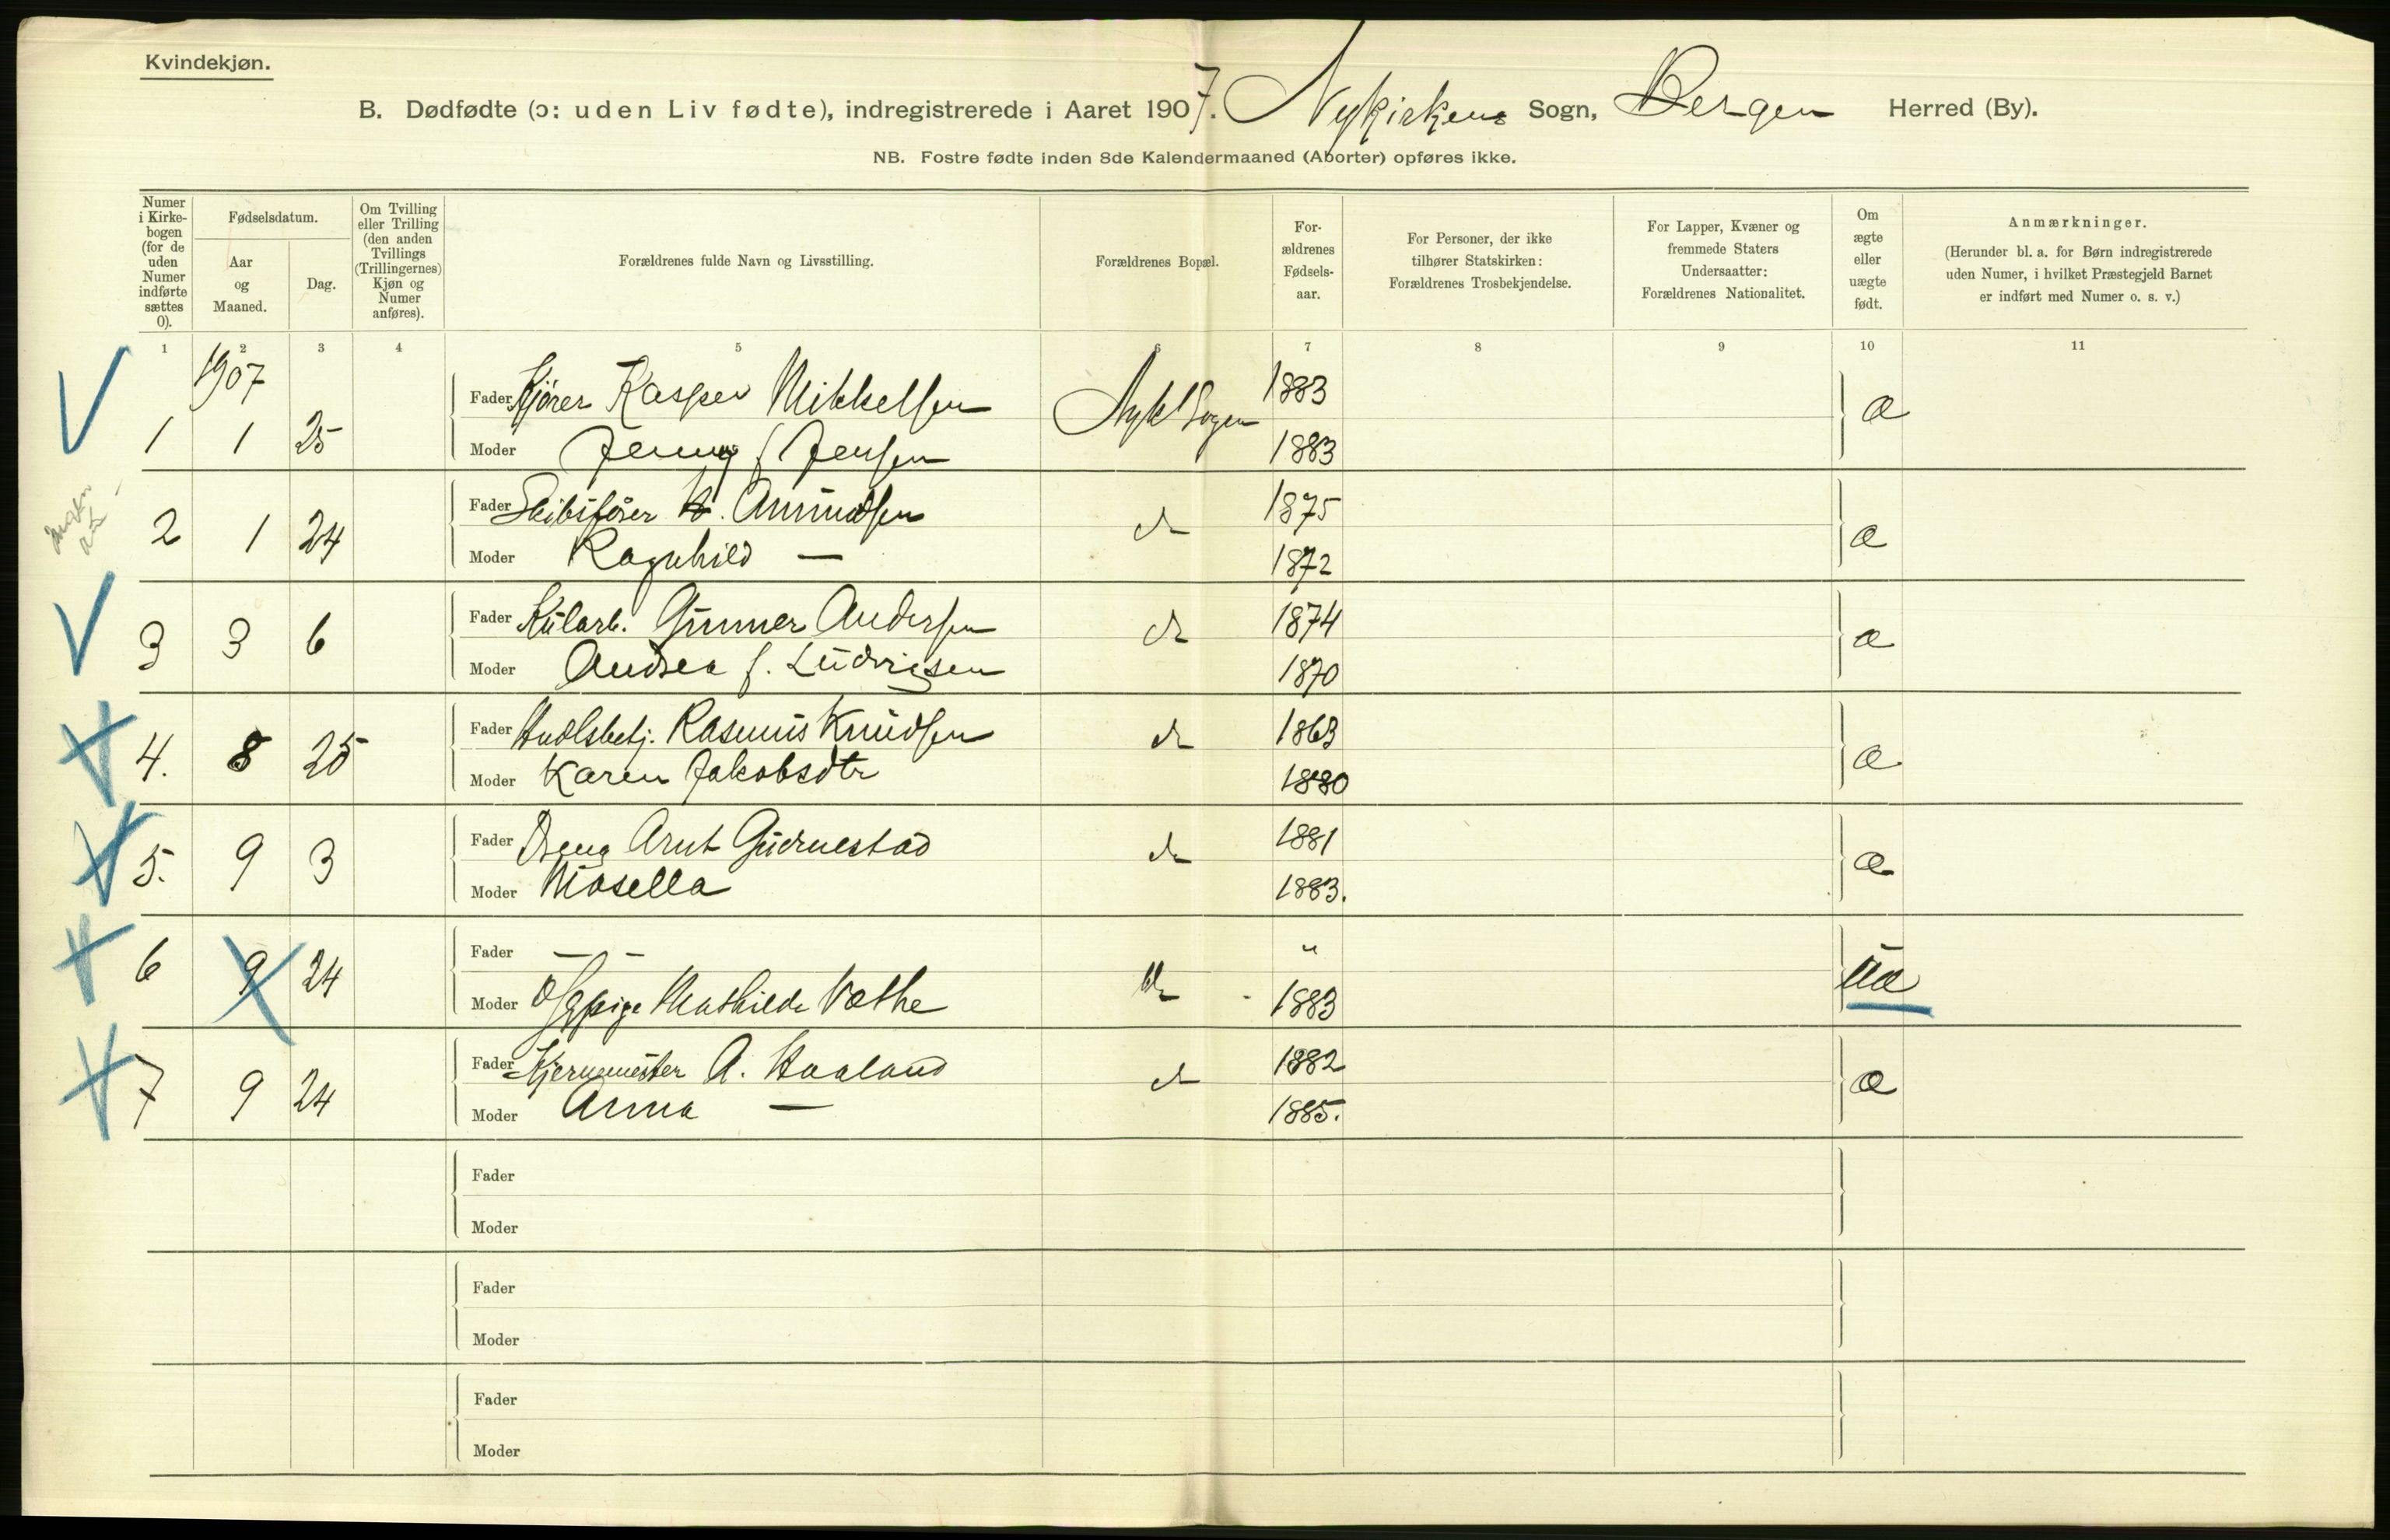 Kvindekjøn.
B. Dødfødte (ɔ: uden Liv fødte), indregistrerede i Aaret 1907. Nykirkens Sogn, Bergen Herred (By).
NB. Fostre fødte inden 8de Kalendermaaned (Aborter) opføres ikke.
Numer i Kirke- bogen (for de uden Numer indførte sættes 0).
Fødselsdatum.
Aar og Maaned.
Dag.
Om Tvilling eller Trilling (den anden Tvillings (Trillingernes) Kjøn og Numer anføres).
Forældrenes fulde Navn og Livsstilling.
Forældrenes Bopæl.
For- ældrenes Fødsels- aar.
For Personer, der ikke tilhører Statskirken: Forældrenes Trosbekjendelse.
For Lapper, Kvæner og fremmede Staters Undersaatter: Forældrenes Nationalitet.
Om ægte eller uægte født.
Anmærkninger.
(Herunder bl. a. for Børn indregistrerede uden Numer, i hvilket Præstegjeld Barnet er indført med Numer o. s. v.)
1 2 3 4 5 6 7 8 9 10 11
1907
Fader Kjører Kasper Mikkelsen Nyk Sogn 1883 æ
1 1 25 Moder Jenny f Jensen 1883
Fader Skibsfører Amundsen 1875
2 1 24 Moder Ragnhild — do 1872 æ
Fader Kularb. Gunner Andersen do 1874
3 3 6 Moder Andrea f. Ludvigsen 1870 æ
Fader Handlsbetj. Rasmus Knudsen do 1863
4. 8 25 Moder Karen Jakobsdtr 1880 æ
Fader Dreng Arnt Gudmestad do 1881
5. 9 3 Moder Mosella 1883. æ
Fader — — "
6 9 24 Moder Mathilde Vathe do 1883 uæ
Fader A. Haaland do 1882
7 9 24 Moder Anna — 1885. æ
Fader
Moder
Fader
Moder
Fader
Moder